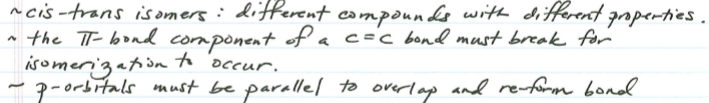 ~ cis-trans isomers : different compounds with different properties.
~ the π-bond component of a c=c bond must break for
isomerization to occur.
~ p-orbitals must be parallel to overlap and re-form bond